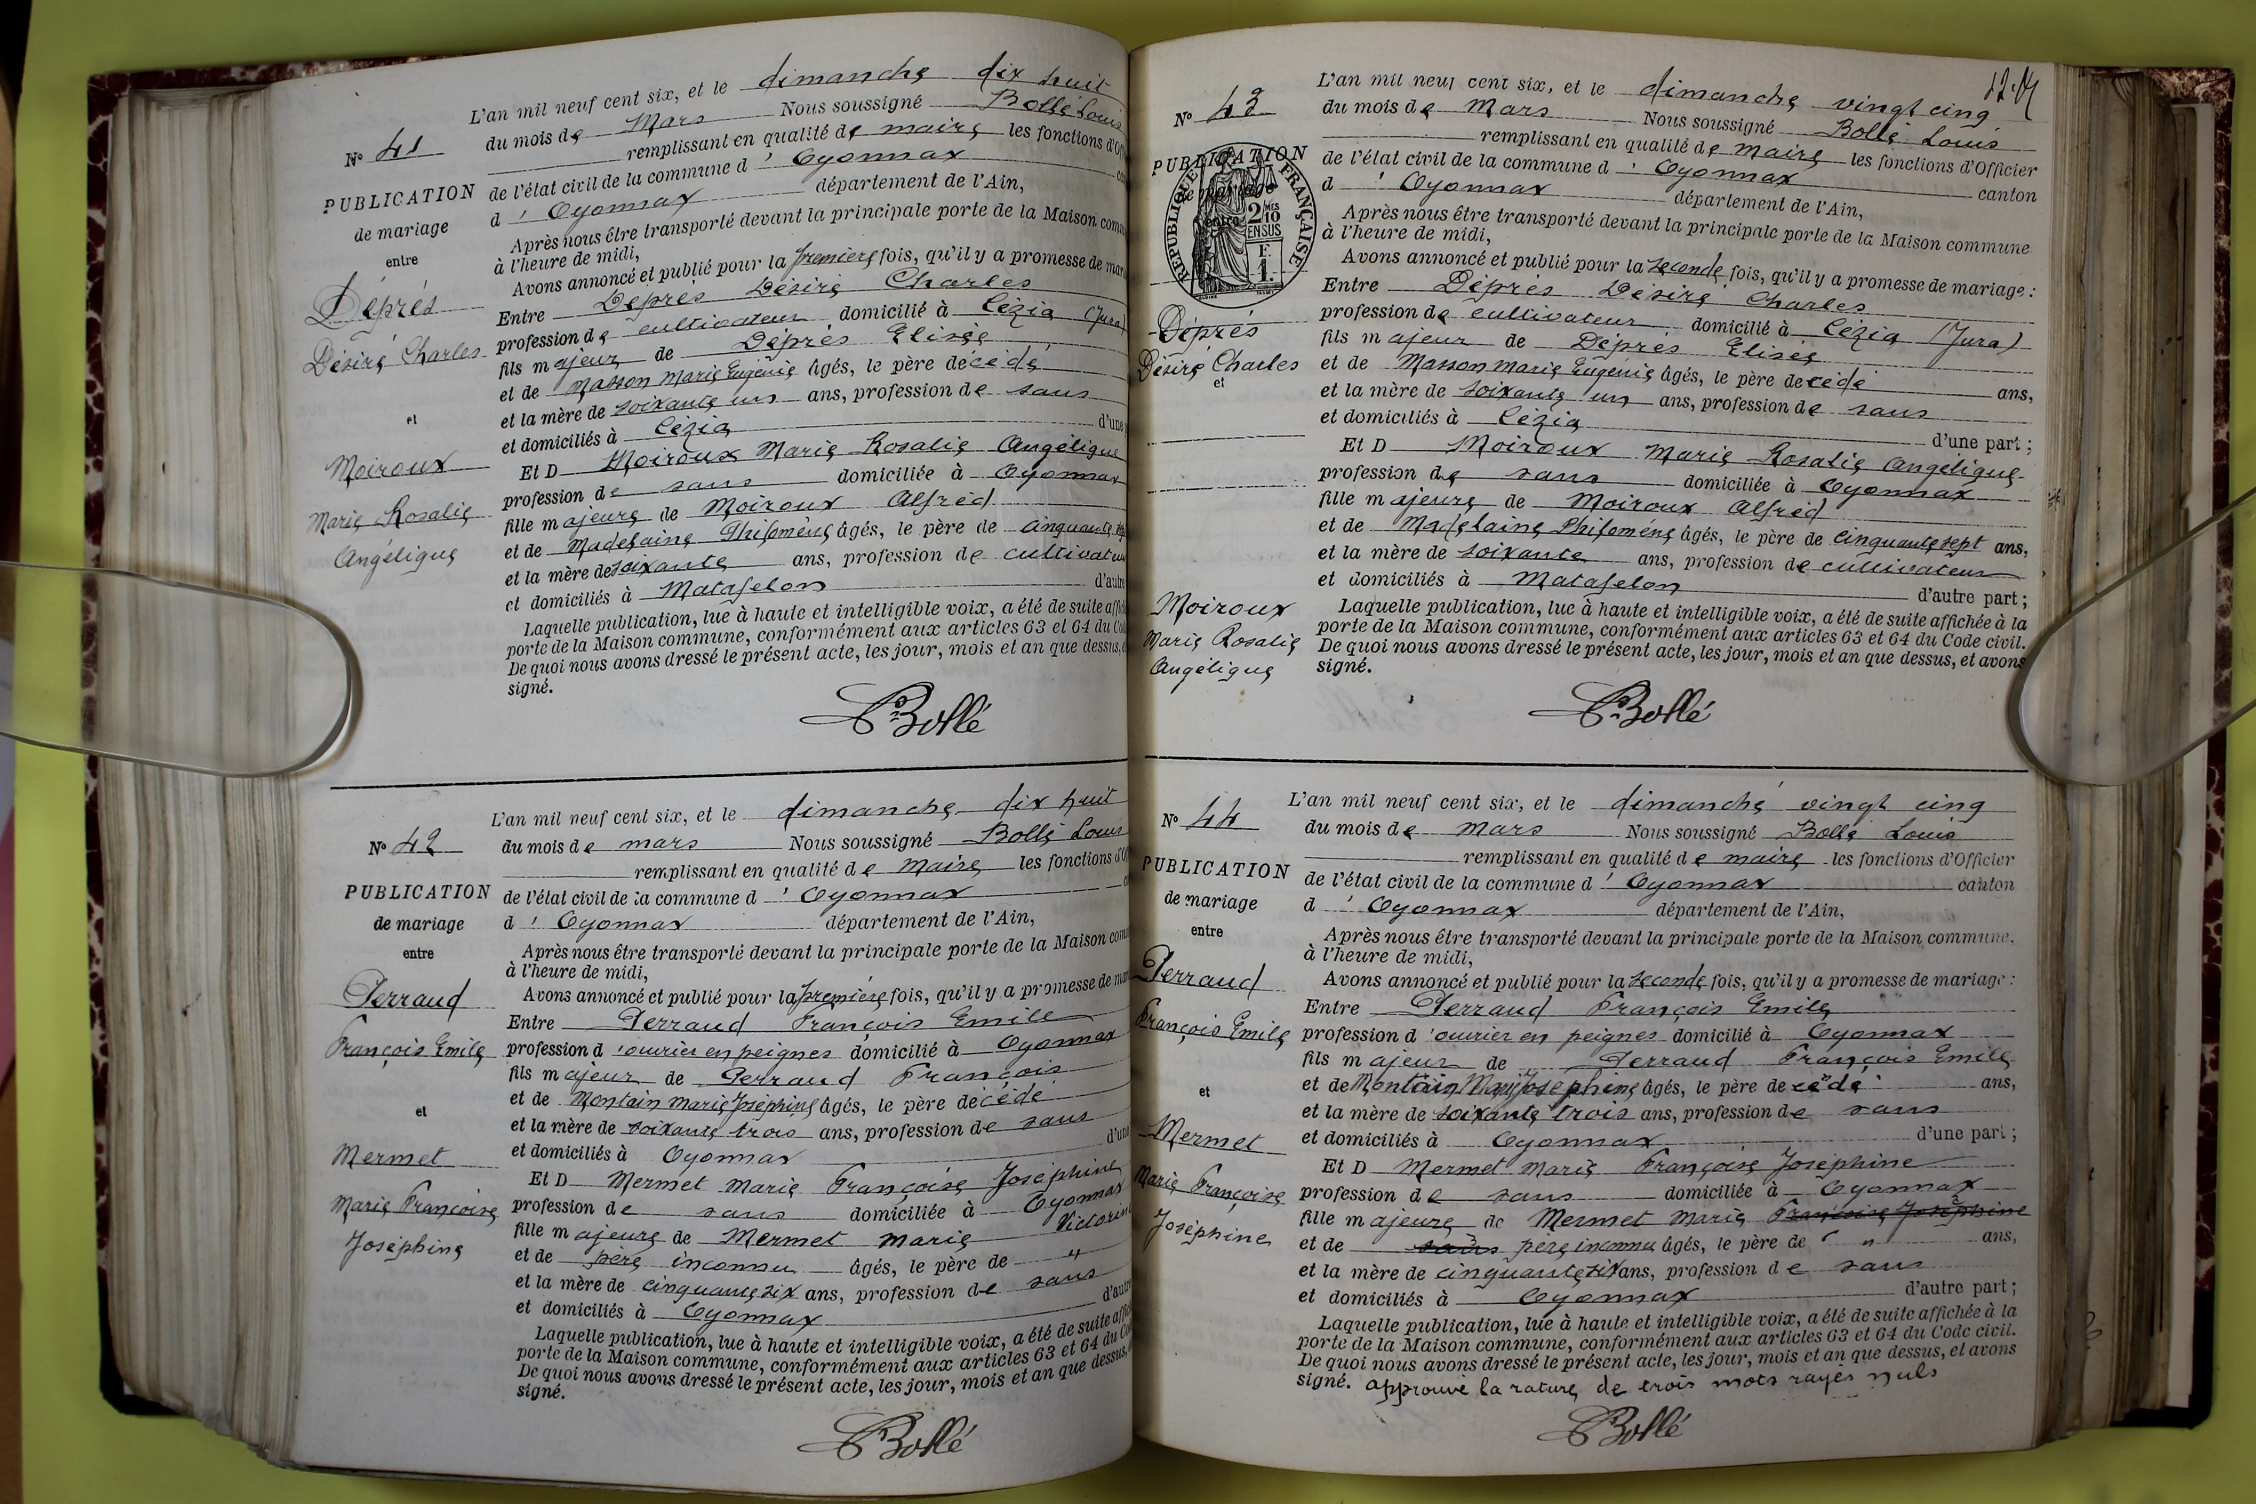 N° 41
PUBLICATION
de mariage
entre
Déprés
Désiré Charles
et
Moiroux
Marie Rosalie
Angélique
L'an mil neuf cent six, et le dimanche dix huit
du mois de Mars Nous soussigné Bollé Louis
remplissant en qualité de maire les fonctions d'Of
de l'état civil de la commune d'Oyonnax
d'Oyonnax département de l'Ain,
Après nous être transporté devant la principale porte de la Maison com
à l'heure de midi,
Avons annoncé et publié pour la première fois, qu'il y a promesse de mar
Entre Déprés Désiré Charles
profession de cultivateur domicilié à Cézia (Jura)
fils majeur de Déprés Elisée
et de Masson Marie Eugénie âgés, le père décédé
et la mère de soixante un ans, profession de sans
et domiciliés à Cézia d'une
Et D Moiroux Marie Rosalie Angélique
profession de sans domiciliée à Oyonnax
fille majeure de Moiroux Alfred
et de Madelaine Philomène âgés, le père de cinquante
et la mère de soixante ans, profession de cultivateur
et domiciliés à Matafelon d'autre
Laquelle publication, lue à haute et intelligible voix, a été de suite affic
porte de la Maison commune, conformément aux articles 63 et 64 du Cod
De quoi nous avons dressé le présent acte, les jour, mois et an que dessus,
signé.
Bollé
N° 42
PUBLICATION
de mariage
entre
Perraud
François Emile
et
Mermet
Marie Françoise
Joséphine
L'an mil neuf cent six, et le dimanche dix huit
du mois de mars Nous soussigné Bollé Louis
remplissant en qualité de Maire les fonctions d'Of
de l'état civil de la commune d'Oyonnax
d'Oyonnax département de l'Ain,
Après nous être transporté devant la principale porte de la Maison com
à l'heure de midi,
Avons annoncé et publié pour la première fois, qu'il y a promesse de mar
Entre Perraud François Emile
profession d'ouvrier en peignes domicilié à Oyonnax
fils majeur de Perraud François
et de Montain Marie Joséphine âgés, le père décédé
et la mère de soixante trois ans, profession de sans
et domiciliés à Oyonnax d'une
Et D Mermet Marie Françoise Joséphine
profession de sans domiciliée à Oyonnax
fille majeure de Mermet Marie Victorine
et de père inconnu âgés, le père de "
et la mère de cinquante six ans, profession de sans
et domiciliés à Oyonnax d'autre
Laquelle publication, lue à haute et intelligible voix, a été de suite affic
porte de la Maison commune, conformément aux articles 63 et 64 du Co
De quoi nous avons dressé le présent acte, les jour, mois et an que dessus,
signé.
Bollé
N° 43
PUBLICATION
de mariage
entre
RÉPUBLIQUE FRANÇAISE
2/10 MES
EN SUS
F.
1.
Déprés
Désiré Charles
et
Moiroux
Marie Rosalie
Angélique
L'an mil neuf cent six, et le dimanche vingt cinq
du mois de Mars Nous soussigné Bollé Louis
remplissant en qualité de maire les fonctions d'Officier
de l'état civil de la commune d'Oyonnax canton
d'Oyonnax département de l'Ain,
Après nous être transporté devant la principale porte de la Maison commune
à l'heure de midi,
Avons annoncé et publié pour la seconde fois, qu'il y a promesse de mariage :
Entre Déprés Désiré Charles
profession de cultivateur domicilié à Cézia (Jura)
fils majeur de Déprés Elisée
et de Masson Marie Eugénie âgés, le père décédé ans,
et la mère de soixante un ans, profession de sans
et domiciliés à Cézia d'une part ;
Et D Moiroux Marie Rosalie Angélique
profession de sans domiciliée à Oyonnax
fille majeure de Moiroux Alfred
et de Madelaine Philomène âgés, le père de cinquante sept ans,
et la mère de soixante ans, profession de cultivateur
et domiciliés à Matafelon d'autre part ;
Laquelle publication, lue à haute et intelligible voix, a été de suite affichée à la
porte de la Maison commune, conformément aux articles 63 et 64 du Code civil.
De quoi nous avons dressé le présent acte, les jour, mois et an que dessus, et avons
signé.
Bollé
N° 44
PUBLICATION
de mariage
entre
Perraud
François Emile
et
Mermet
Marie Françoise
Joséphine
L'an mil neuf cent six, et le dimanche vingt cinq
du mois de mars Nous soussigné Bollé Louis
remplissant en qualité de maire les fonctions d'Officier
de l'état civil de la commune d'Oyonnax canton
d'Oyonnax département de l'Ain,
Après nous être transporté devant la principale porte de la Maison commune,
à l'heure de midi,
Avons annoncé et publié pour la seconde fois, qu'il y a promesse de mariage :
Entre Perraud François Emile
profession d'ouvrier en peignes domicilié à Oyonnax
fils majeur de Perraud François Emile
et de Montain Marie Joséphine âgés, le père décédé ans,
et la mère de soixante trois ans, profession de sans
et domiciliés à Oyonnax d'une part ;
Et D Mermet Marie Françoise Joséphine
profession de sans domiciliée à Oyonnax
fille majeure de Mermet Marie Françoise Joséphine
et de sans père inconnu âgés, le père de " " ans,
et la mère de cinquante six ans, profession de sans
et domiciliés à Oyonnax d'autre part ;
Laquelle publication, lue à haute et intelligible voix, a été de suite affichée à la
porte de la Maison commune, conformément aux articles 63 et 64 du Code civil.
De quoi nous avons dressé le présent acte, les jour, mois et an que dessus, et avons
signé. approuvé la rature de trois mots rayés nuls
Bollé